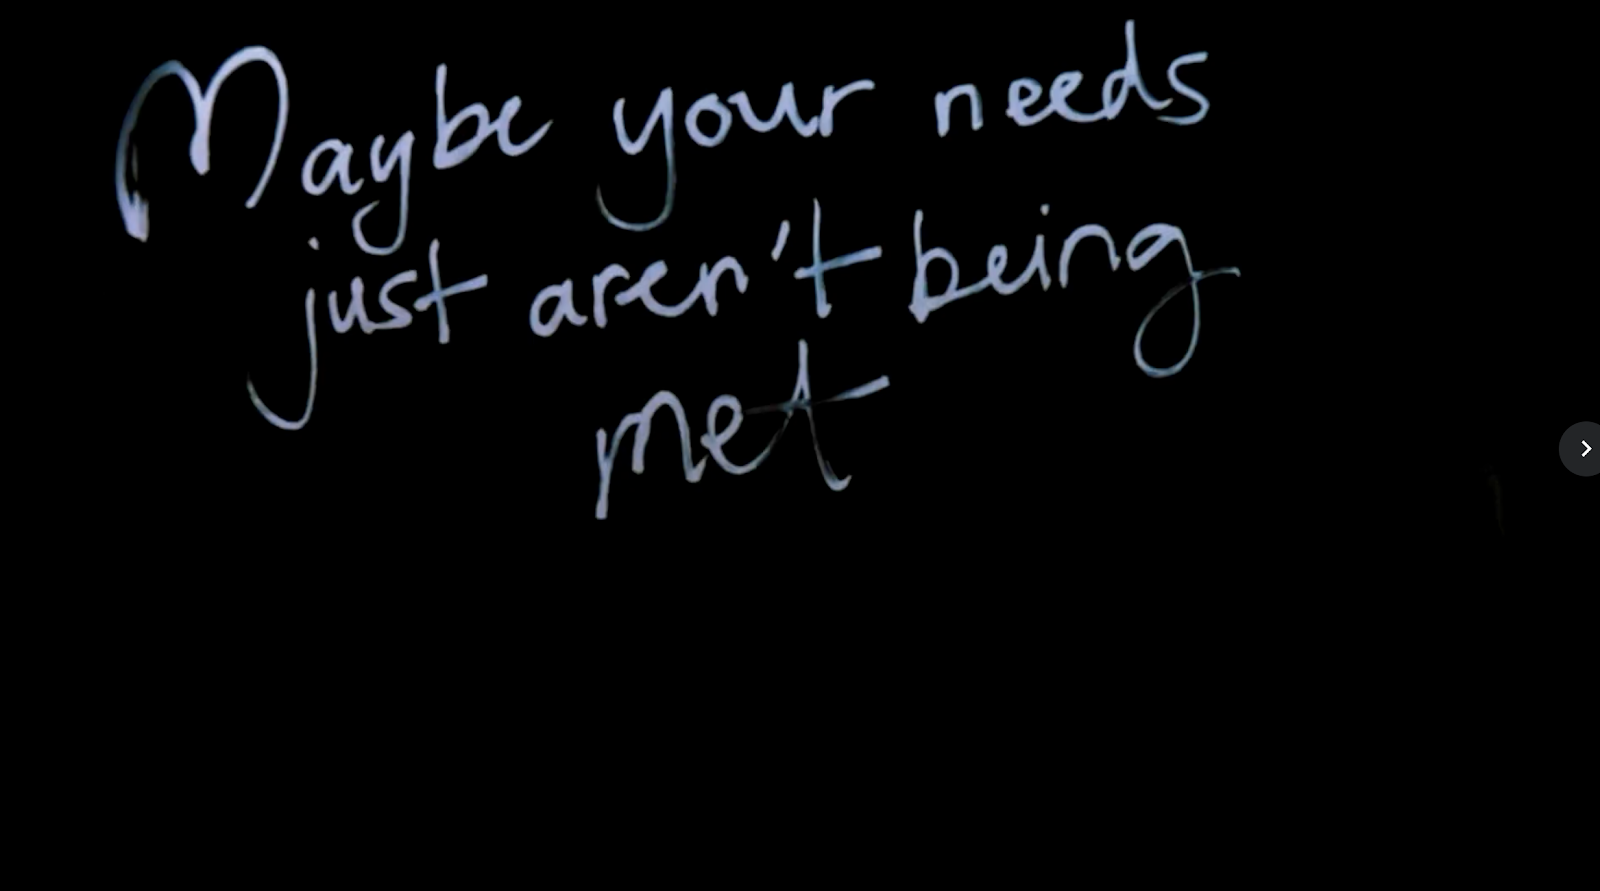 Maybe your needs
just aren't being
met